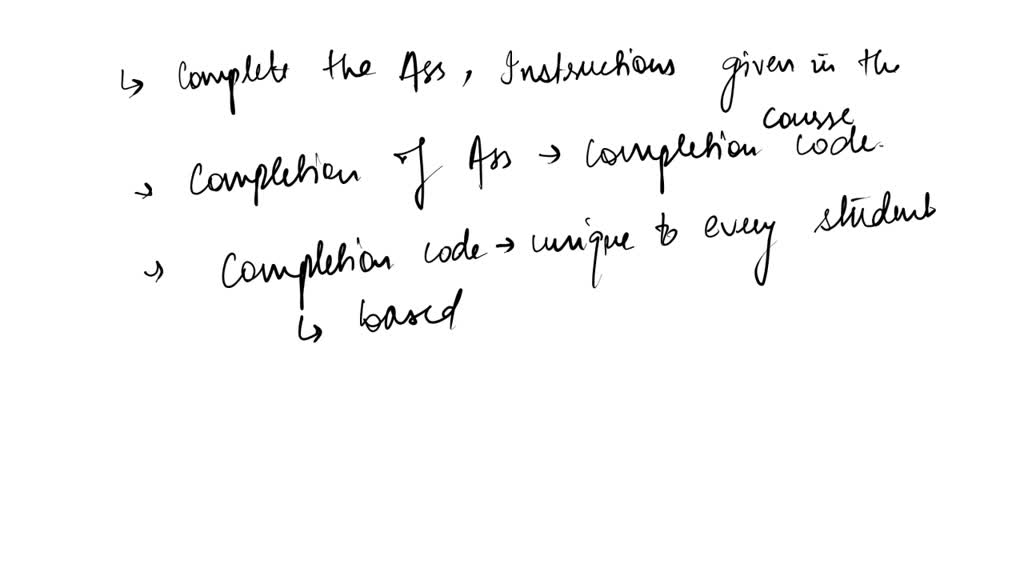 ↳ Complete the Ass, Instructions given in the
course
→ Completion of Ass → Completion code.
→ Completion code → unique to every student
↳ based